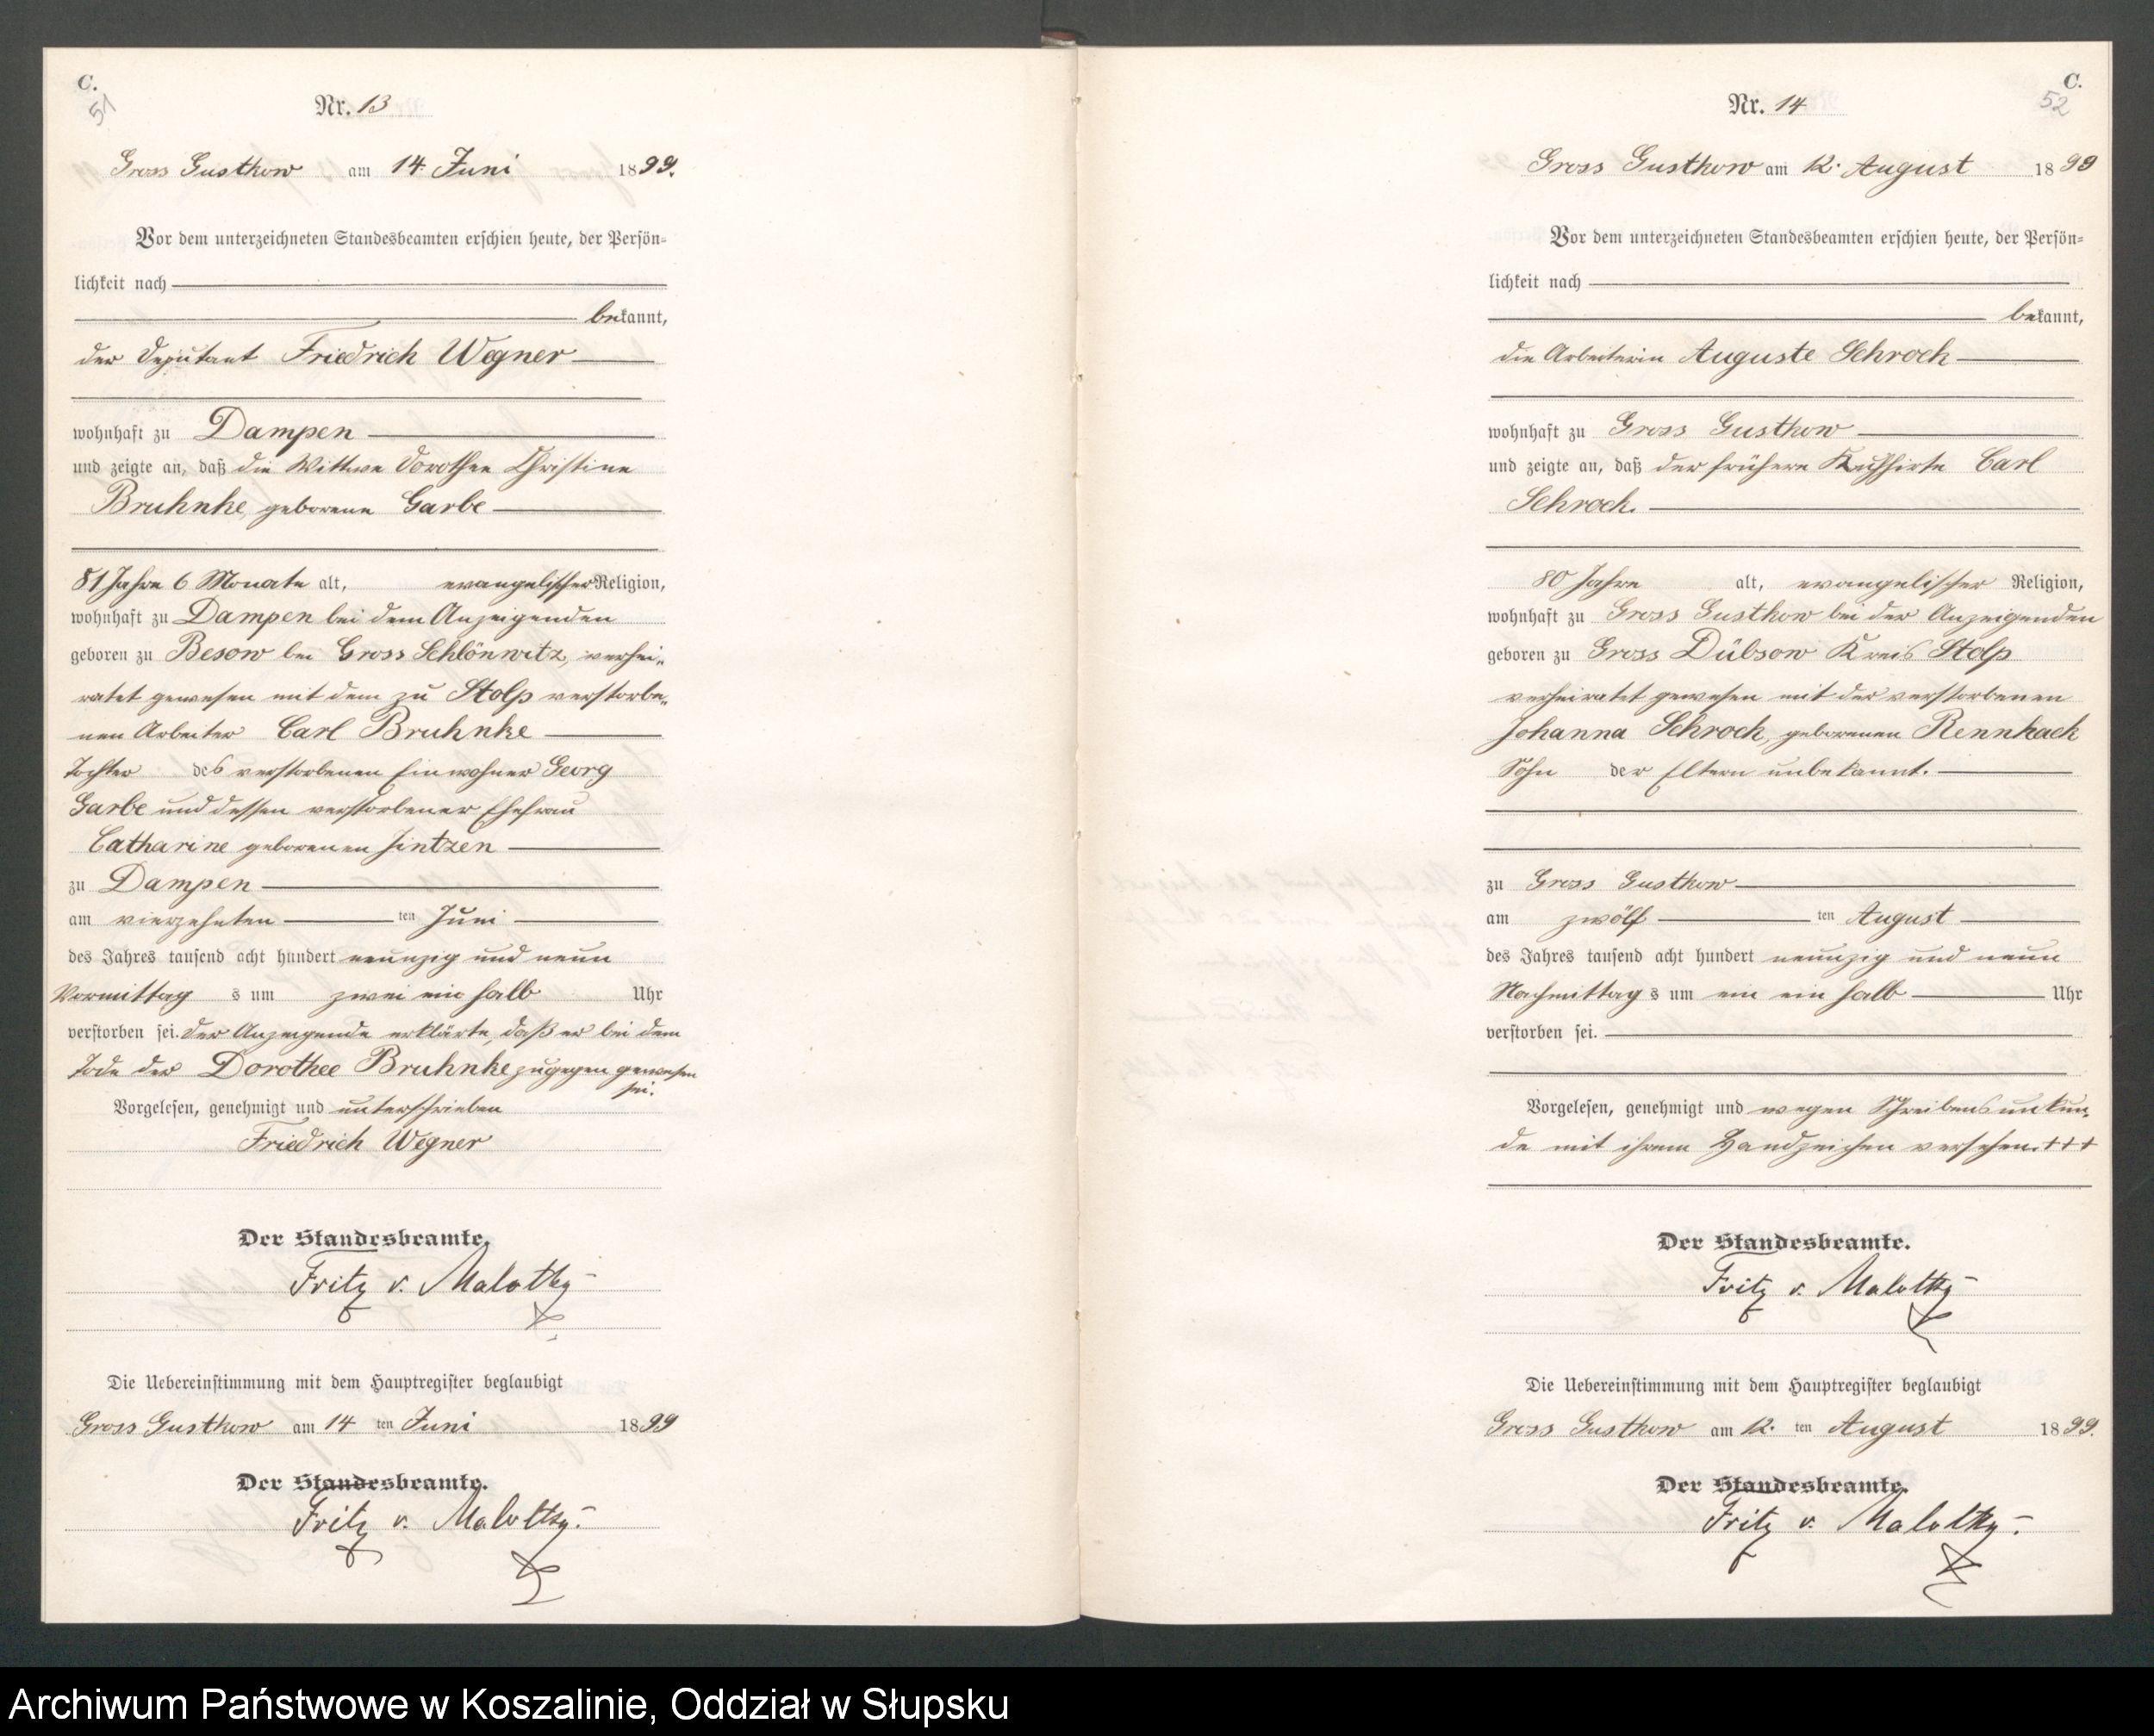 C.
51
Nr. 13
Gross Gusthow am 14. Juni 1899.
Vor dem unterzeichneten Standesbeamten erschien heute, der Persön=
lichkeit nach
bekannt,
der Deputant Friedrich Wegner
wohnhaft zu Dampen
und zeigte an, daß die Wittwe Dorothee Christine
Bruhnke, geborene Garbe
81 Jahre 6 Monate alt, evangelischer Religion,
wohnhaft zu Dampen bei dem Anzeigenden
geboren zu Besow bei Gross Schlönwitz, verhei„
ratet gewesen mit dem zu Stolp verstorbe„
nen Arbeiter Carl Bruhnke
Tochter des verstorbenen Einwohner Georg
Garbe und dessen verstorbener Ehefrau
Catharine geborenen Jintzen
zu Dampen
am vierzehnten ten Juni
des Jahres tausend acht hundert neunzig und neun
Vormittag s um zwei ein halb Uhr
verstorben sei. Der Anzeigende erklärte, daß er bei dem
Tode der Dorothee Bruhnke zugegen gewesen
sei.
Vorgelesen, genehmigt und unterschrieben
Friedrich Wegner
Der Standesbeamte.
Fritz v. Malotky
Die Uebereinstimmung mit dem Hauptregister beglaubigt
Gross Gusthow am 14 ten Juni 1899
Der Standesbeamte.
Fritz v. Malotky.
C.
52
Nr. 14
Gross Gusthow am 12. August 1899
Vor dem unterzeichneten Standesbeamten erschien heute, der Persön=
lichkeit nach
bekannt,
die Arbeiterin Auguste Schroch
wohnhaft zu Gross Gusthow
und zeigte an, daß der frühere Kuhhirte Carl
Schroch.
80 Jahre alt, evangelischer Religion,
wohnhaft zu Gross Gusthow bei der Anzeigenden
geboren zu Gross Dübsow Kreis Stolp
verheiratet gewesen mit der verstorbenen
Johanna Schroch, geborenen Rennhack
Sohn der Eltern unbekannt.
zu Gross Gusthow
am zwölf ten August
des Jahres tausend acht hundert neunzig und neun
Nachmittag s um ein ein halb Uhr
verstorben sei.
Vorgelesen, genehmigt und wegen Schreibensunkun„
de mit ihrem Handzeichen versehen. +++
Der Standesbeamte.
Fritz v. Malotky
Die Uebereinstimmung mit dem Hauptregister beglaubigt
Gross Gusthow am 12. ten August 1899.
Der Standesbeamte.
Fritz v. Malotky.
Archiwum Państwowe w Koszalinie, Oddział w Słupsku